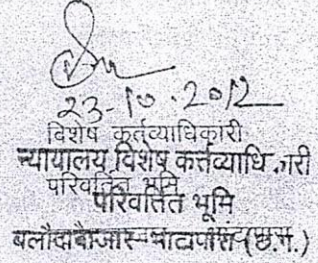 23-10-2012
विशेष कर्तव्याधिकारी
न्यायालय विशेष कर्त्तव्याधि.री
परिवर्तित भूमि
परिवर्तित भूमि
बलौदाबाजार-भाटापारा (छ.ग.)